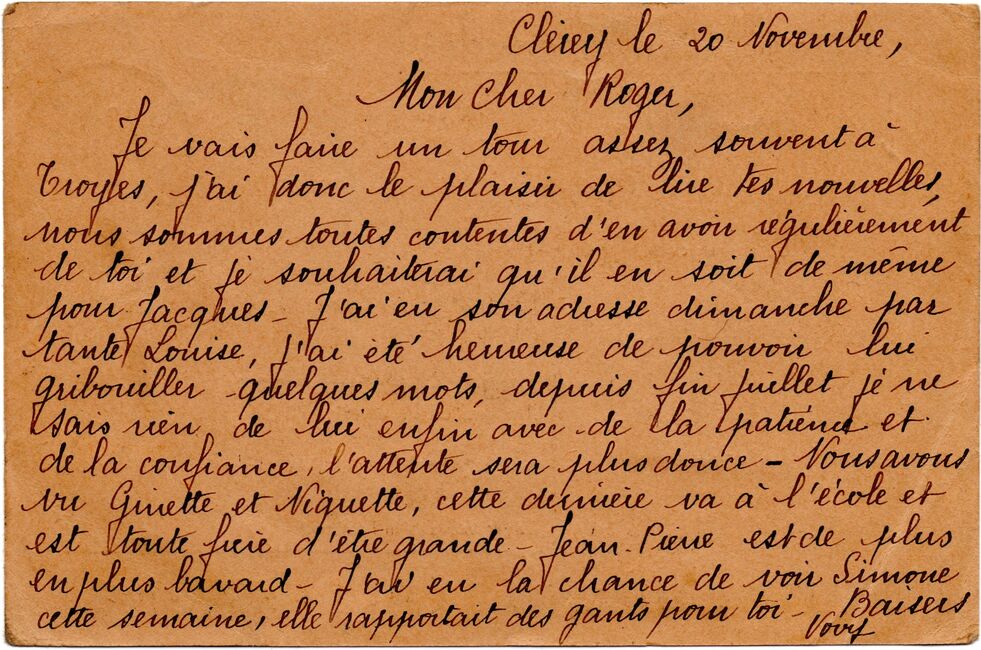 Clérey le 20 Novembre,
Mon Cher Roger,
Je vais faire un tour assez souvent à
Troyes, j'ai donc le plaisir de lire tes nouvelles,
nous sommes toutes contentes d'en avoir régulièrement
de toi et je souhaiterai qu'il en soit de même
pour Jacques - J'ai eu son adresse dimanche par
tante Louise, j'ai été heureuse de pouvoir lui
gribouiller quelques mots, depuis fin juillet je ne
sais rien de lui enfin avec de la patience et
de la confiance, l'attente sera plus douce - Nous avons
vu Ginette et Niquette, cette dernière va à l'école et
est toute fière d'être grande - Jean-Pierre est de plus
en plus bavard - J'ai eu la chance de voir Simone
cette semaine, elle rapportait des gants pour toi - Baisers